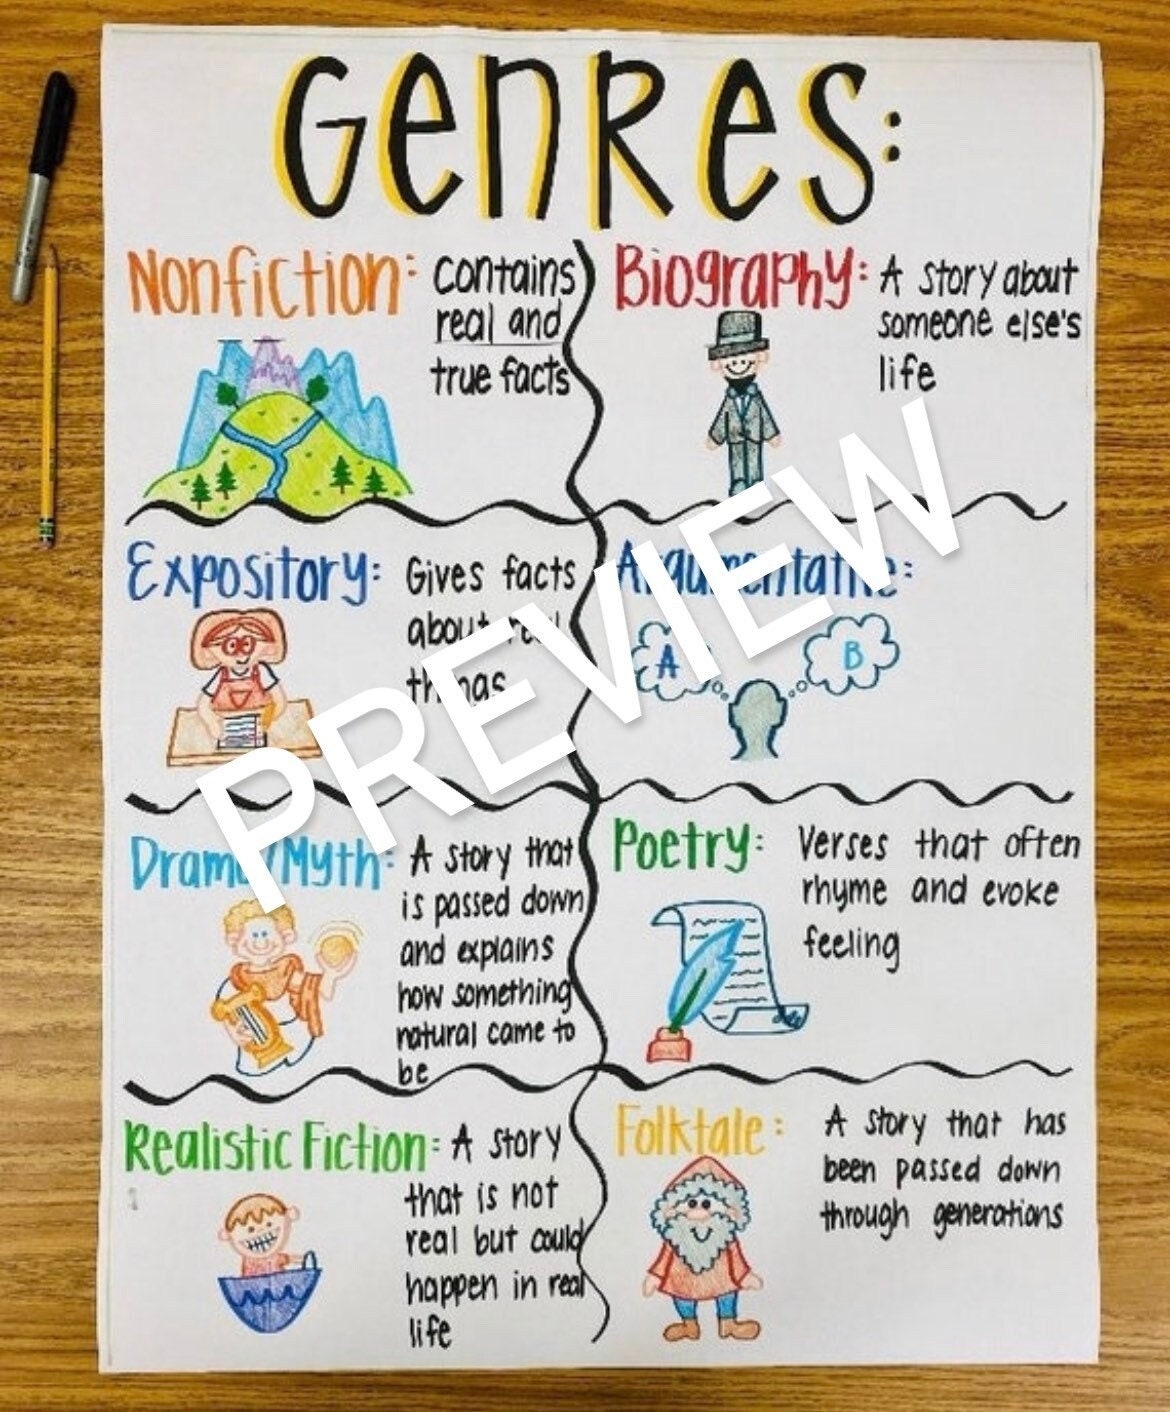 Genres:
Nonfiction: contains
real and
true facts
Biography: A story about
someone else's
life
Expository: Gives facts
about real
things
Argumentative:
A
B
Drama/Myth: A story that
is passed down
and explains
how something
natural came to
be
Poetry: Verses that often
rhyme and evoke
feeling
Realistic Fiction: A story
that is not
real but could
happen in real
life
Folktale: A story that has
been passed down
through generations
PREVIEW